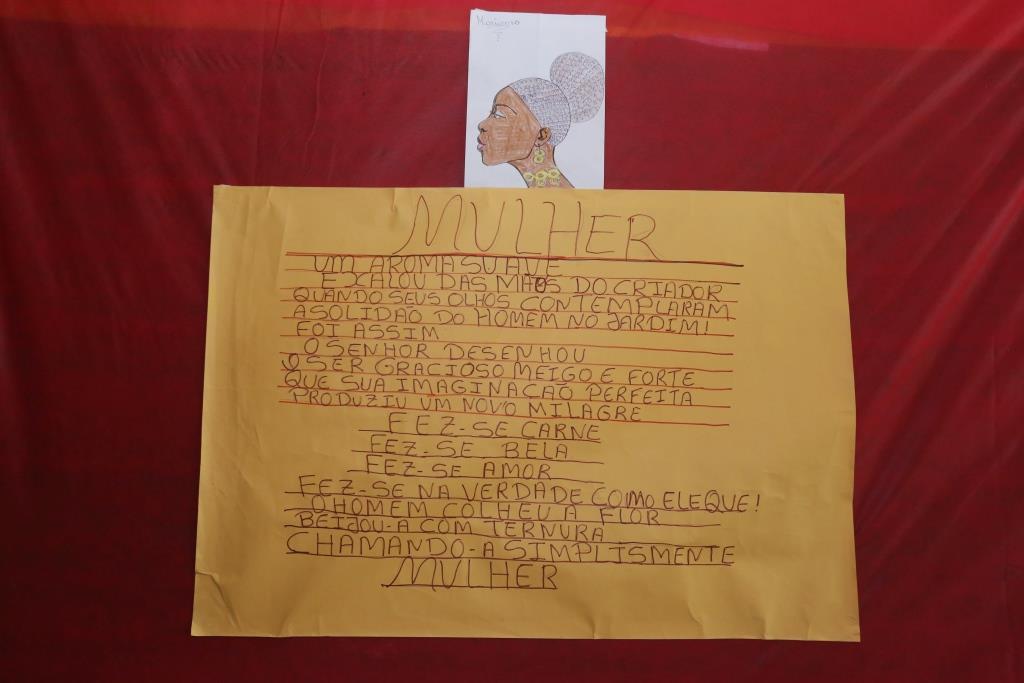 MULHER
UM AROMA SUAVE
EXALOU DAS MAOS DO CRIADOR
QUANDO SEUS OLHOS CONTEMPLARAM
A SOLIDÃO DO HOMEM NO JARDIM!
FOI ASSIM
O SENHOR DESENHOU
O SER GRACIOSO MEIGO E FORTE
QUE SUA IMAGINACÃO PERFEITA
PRODUZIU UM NOVO MILAGRE
FEZ-SE CARNE
FEZ-SE BELA
FEZ-SE AMOR
FEZ-SE NA VERDADE COMO ELE QUE!
O HOMEM COLHEU A FLOR
BEIJOU-A COM TERNURA
CHAMANDO-A SIMPLISMENTE
MULHER